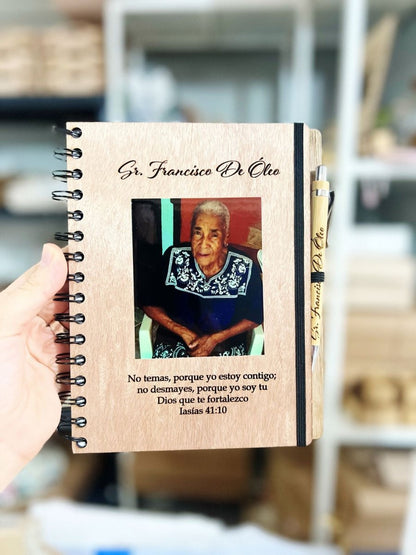 Sr. Francisco De Óleo
No temas, porque yo estoy contigo;
no desmayes, porque yo soy tu
Dios que te fortalezco
Iasías 41:10
Sr. Francisco De Óleo